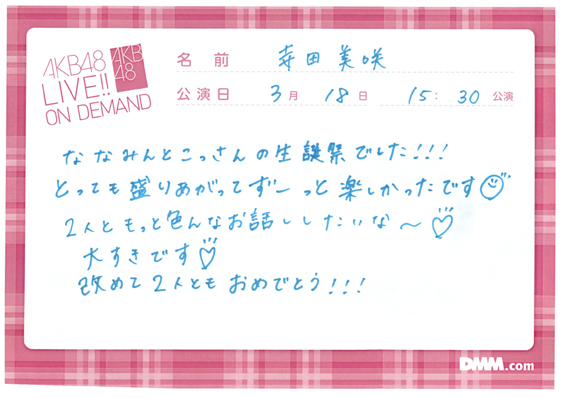 AKB48
LIVE!!
ON DEMAND
AKB
48
名前 寺田美咲
公演日 3月 18日 15:30公演
ななみんとこっさんの生誕祭でした!!!
とっても盛りあがってずーっと楽しかったです
2人ともっと色んなお話ししたいな〜♡
大すきです♡
改めて2人とも おめでとう!!!
DMM.com